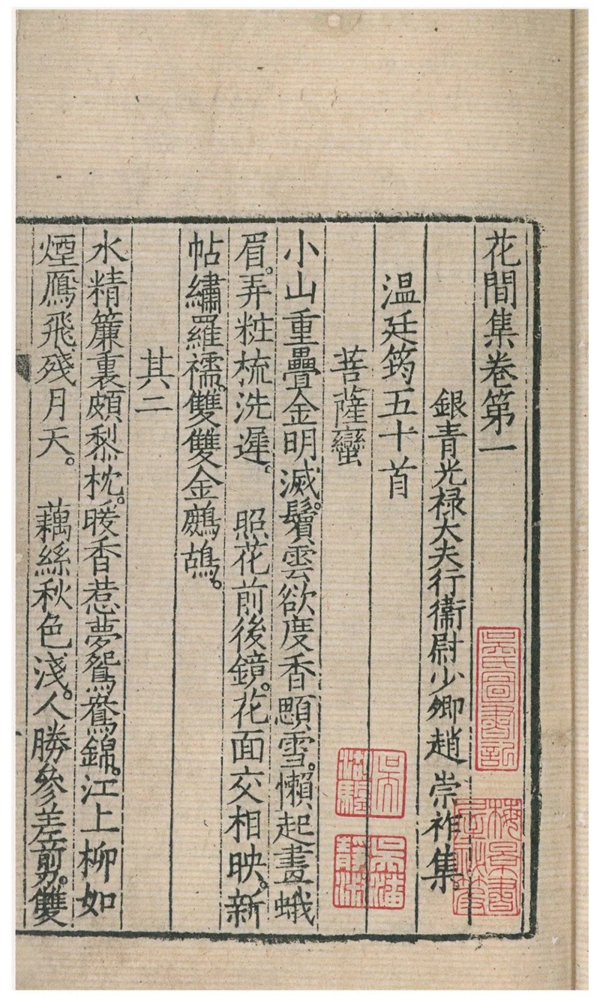 花間集卷第一
銀青光禄大夫行衞尉少卿趙 崇祚集
温廷筠五十首
菩薩蠻
小山重疊金明滅。鬢雲欲度香顋雪。懶起畫蛾
眉。弄粧梳洗遲。 照花前後鏡。花面交相映。新
帖繡羅襦。雙雙金鷓鴣。
其二
水精簾裏頗黎枕。暖香惹夢鴛鴦錦。江上柳如
煙。鴈飛殘月天。 藕絲秋色淺。人勝參差剪。雙